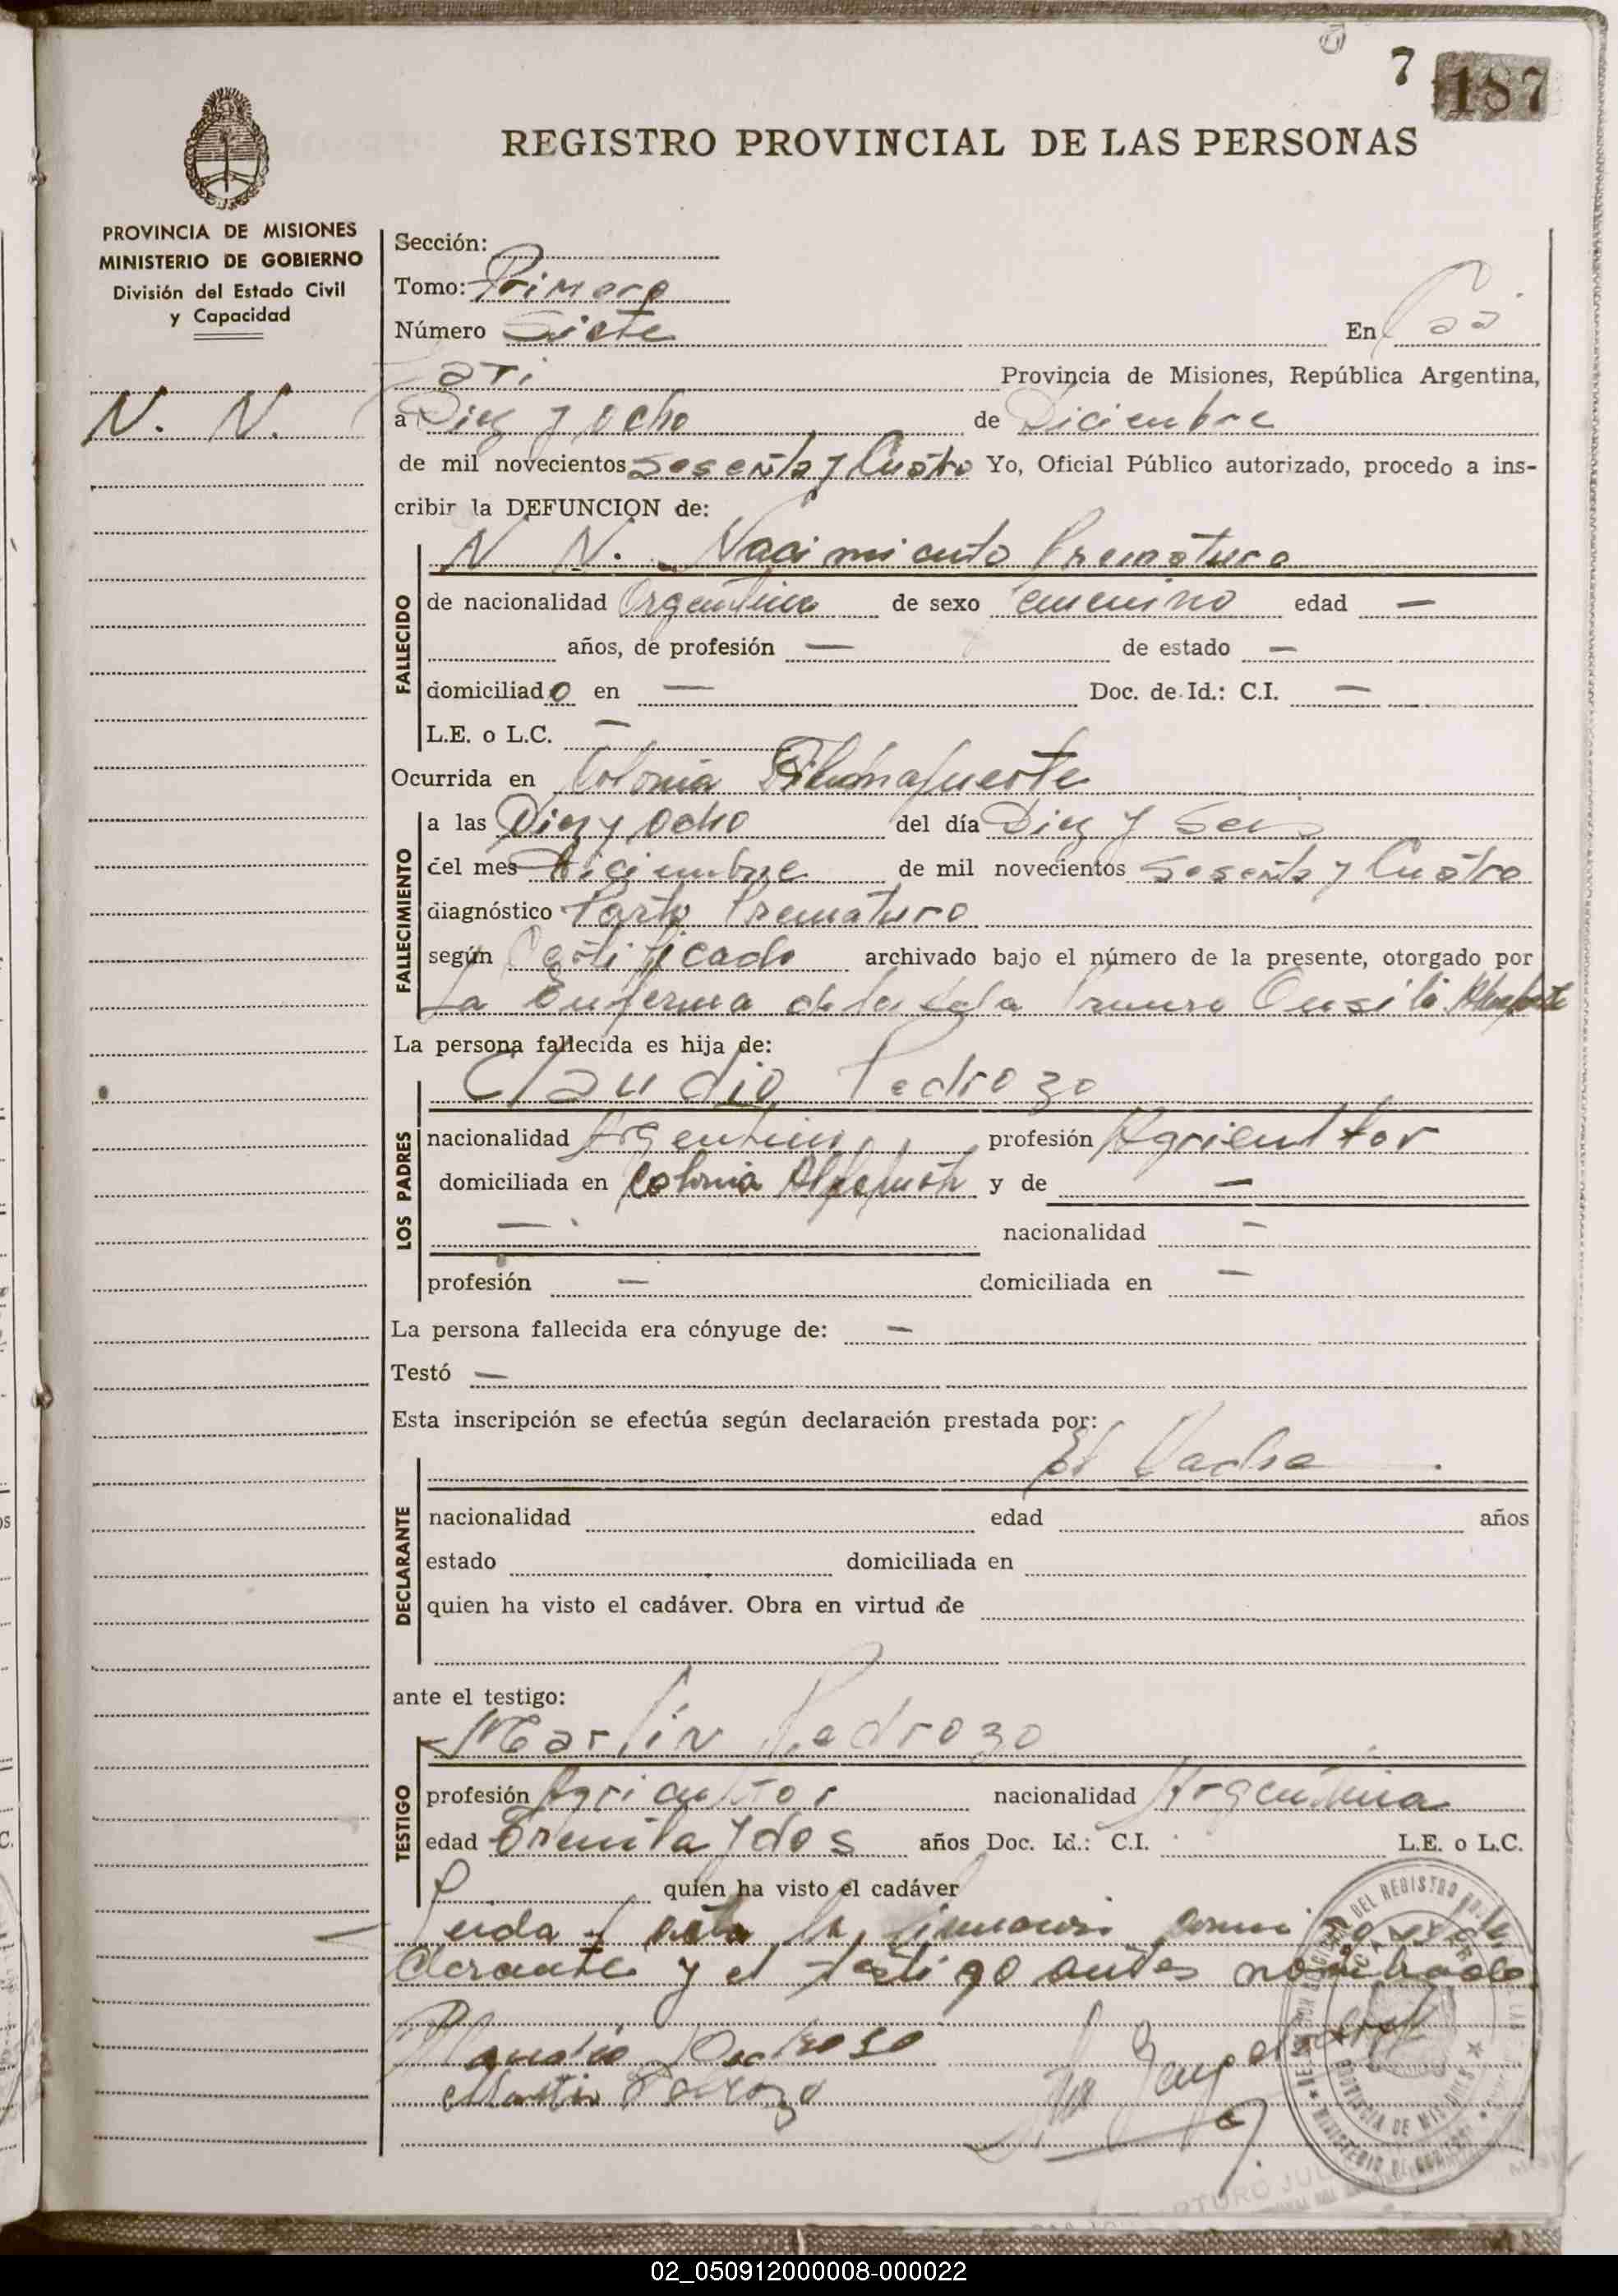 7 187
REGISTRO PROVINCIAL DE LAS PERSONAS
PROVINCIA DE MISIONES
MINISTERIO DE GOBIERNO
División del Estado Civil
y Capacidad
N. N.
Sección:
Tomo: Primero
Número Siete En Caá
Yarí Provincia de Misiones, República Argentina,
a Diez y ocho de Diciembre
de mil novecientos Sesenta y Cuatro Yo, Oficial Público autorizado, procedo a ins-
cribir la DEFUNCION de:
N N. Nacimiento Prematuro
FALLECIDO
de nacionalidad Argentina de sexo femenino edad —
años, de profesión — de estado —
domiciliado en — Doc. de Id.: C.I. —
L.E. o L.C. —
Ocurrida en Colonia Almafuerte
FALLECIMIENTO
a las Diez y Ocho del día Diez y Seis
del mes Diciembre de mil novecientos Sesenta y Cuatro
diagnóstico Parto Prematuro
según Certificado archivado bajo el número de la presente, otorgado por
La Enferma de la Sala Primero
La persona fallecida es hija de:
Claudio Pedrozo
LOS PADRES
nacionalidad Argentina profesión Agricultor
domiciliada en Colonia y de —
— nacionalidad —
profesión — domiciliada en —
La persona fallecida era cónyuge de: —
Testó —
Esta inscripción se efectúa según declaración prestada por:
El Padre
DECLARANTE
nacionalidad edad años
estado domiciliada en
quien ha visto el cadáver. Obra en virtud de
ante el testigo:
Martín Pedrozo
TESTIGO
profesión Agricultor nacionalidad Argentina
edad Treinta y dos años Doc. Id.: C.I. L.E. o L.C.
quien ha visto el cadáver
Leida el acta la
clarante y el testigo antes nombrado
Claudio Pedroso
Martin Pedrozo
DEL REGISTRO
PROVINCIA DE MISIONES
02_050912000008-000022